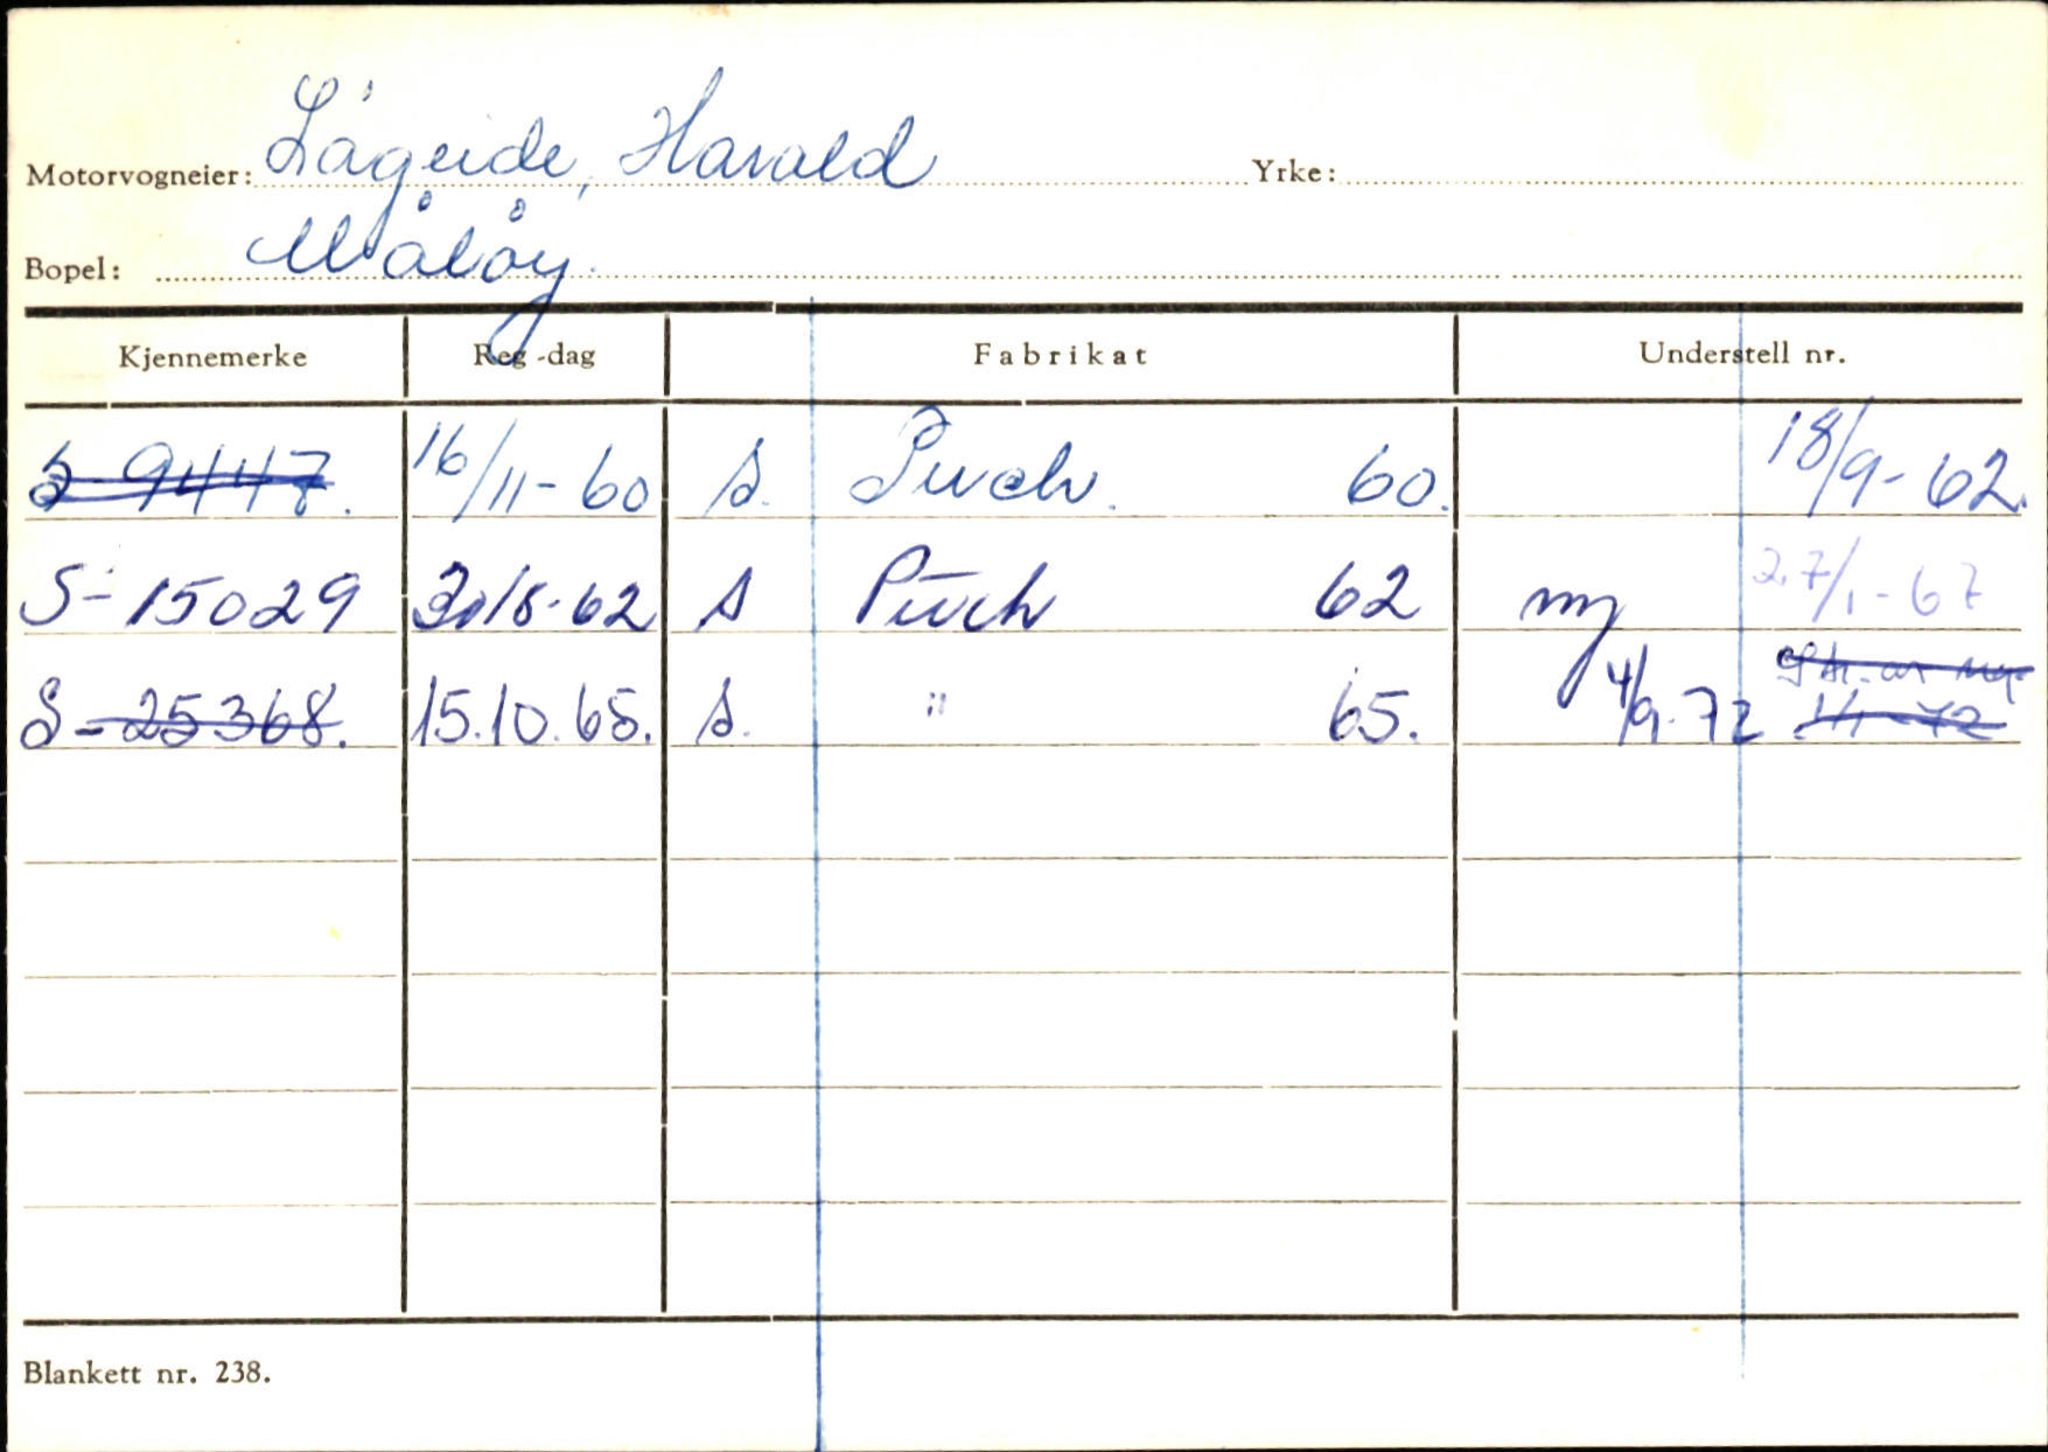 Motorvogneier: Lågeide, Harald Yrke:
Bopel: Måløy.
Kjennemerke Reg-dag Fabrikat Understell nr.
S-9447. 16/11-60 s. Puch. 60. 18/9-62.
S-15029 30/8-62 s Puch 62 ny 27/1-67
S-25368. 15.10.65. s. " 65. 4/9-72 1/1-72
Blankett nr. 238.